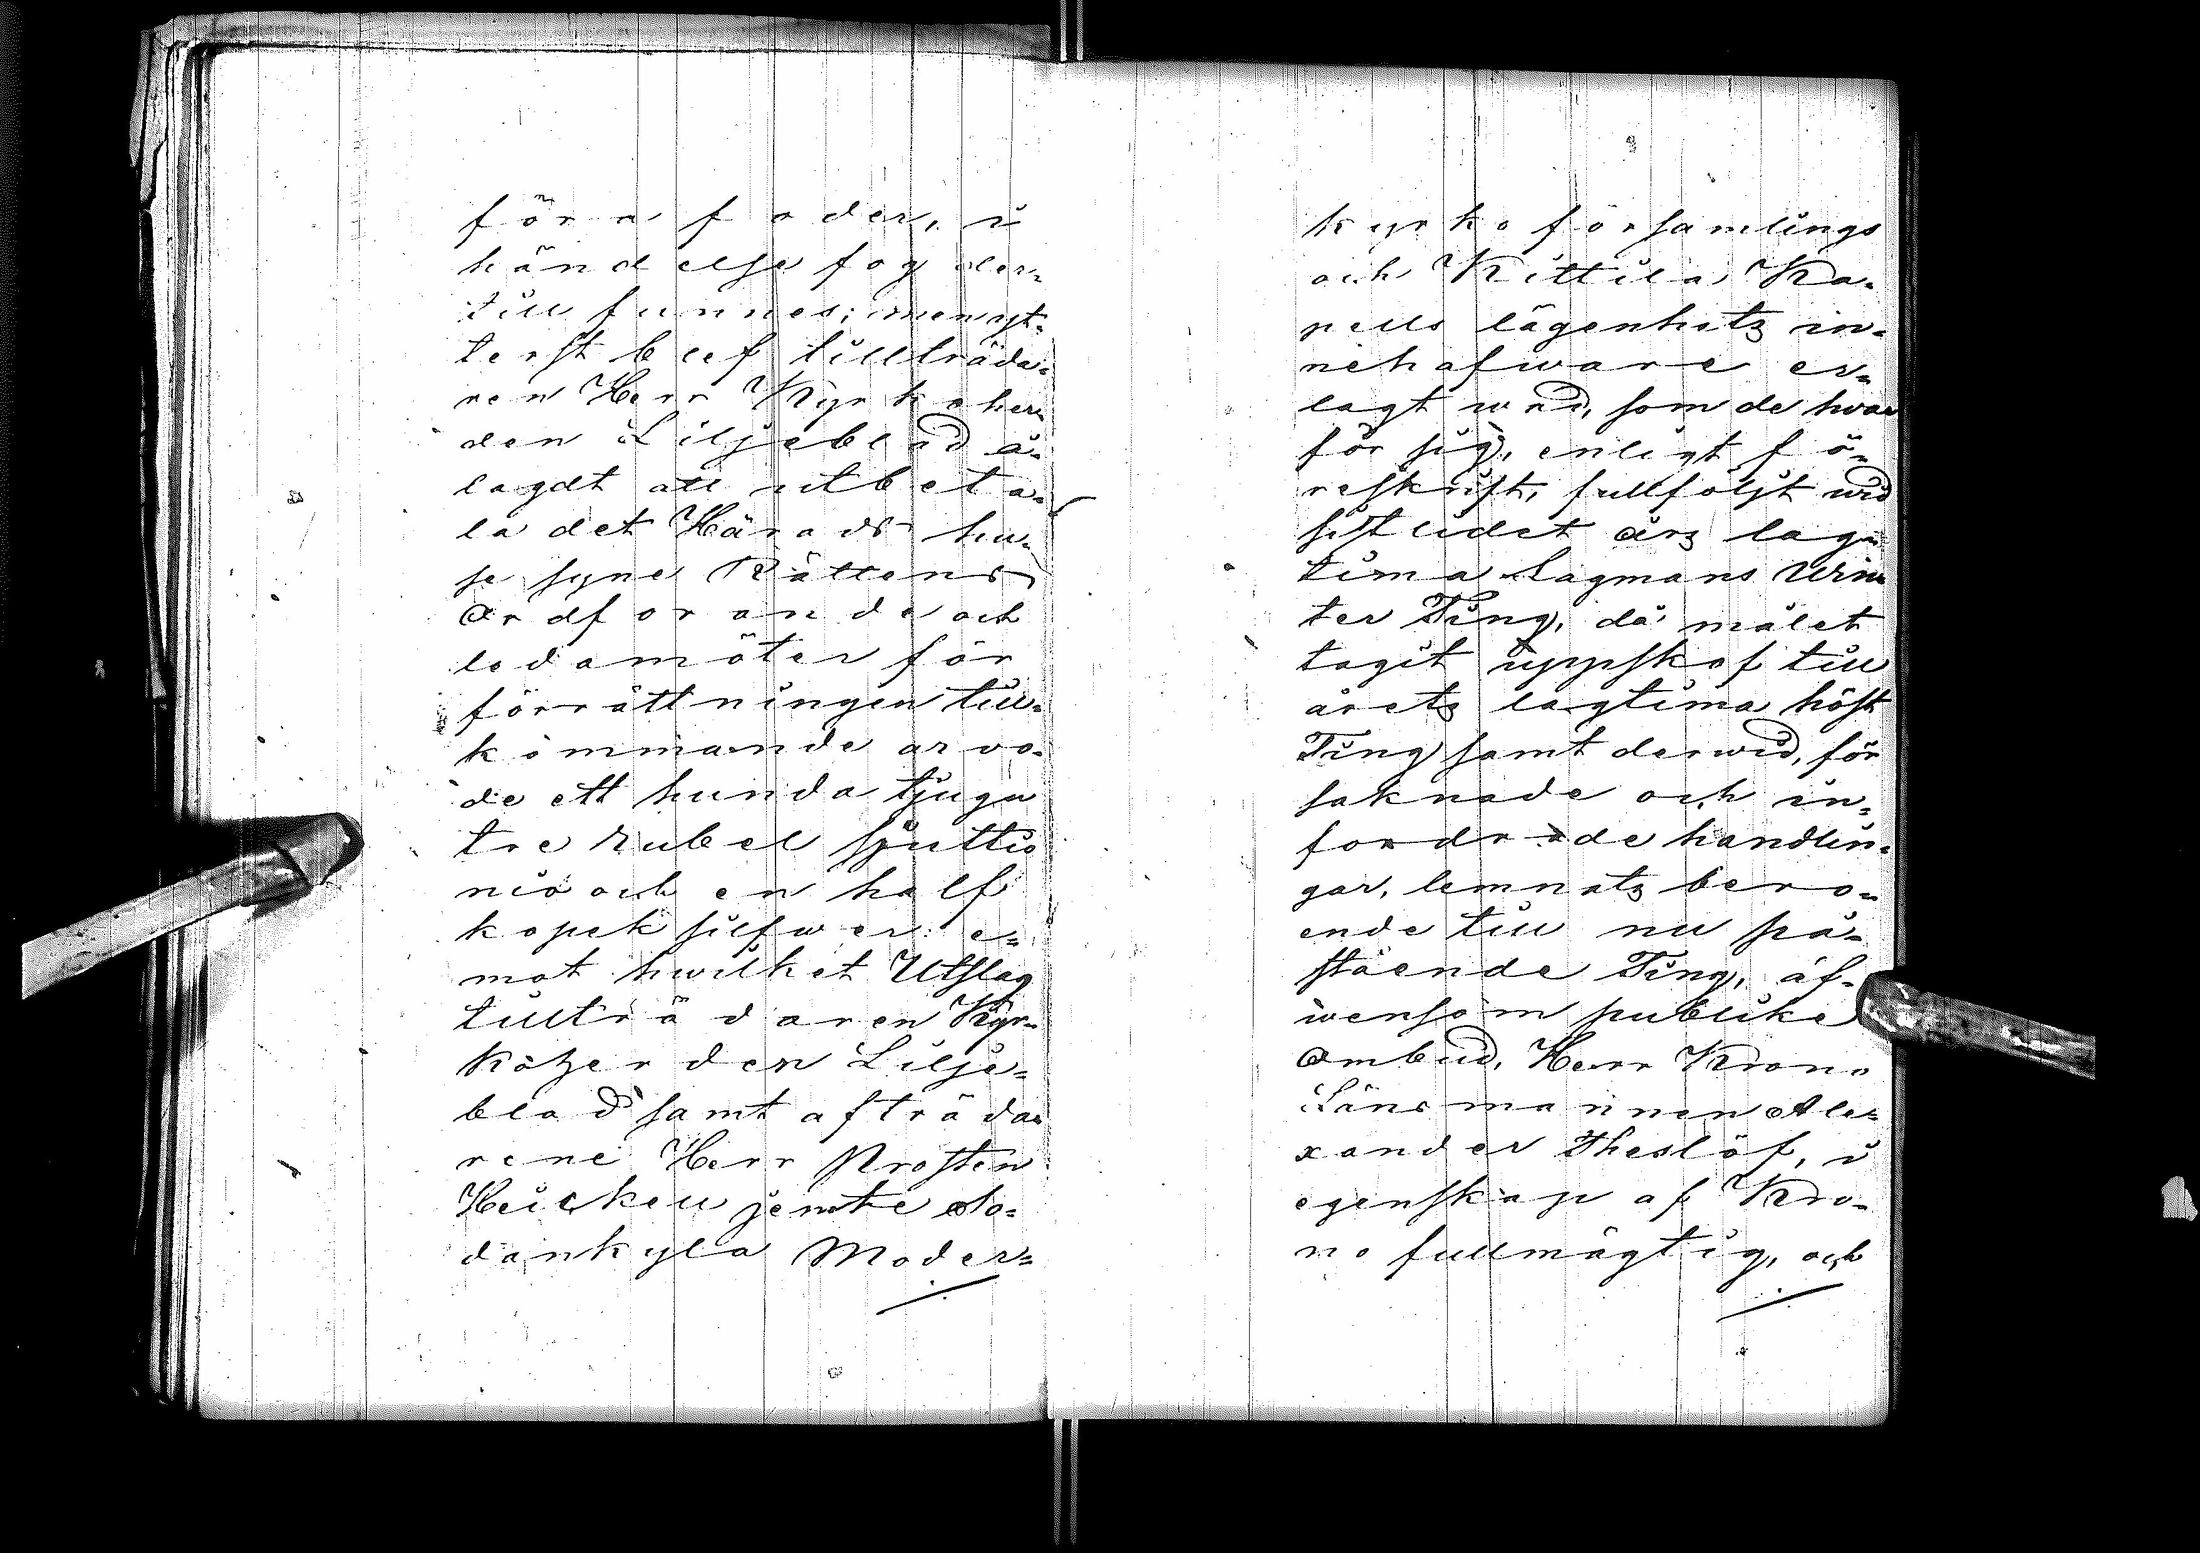 förafoder, i
händelse fog der-
till funnes; men yt-
terst blef tillträda-
ren Herr Kyrkoher-
den Liljeblad å-
lagdt att utbeta-
la det Härads hu-
se syne Rättens
ordforande och
ledamöter för
förrättningen till-
kommande arvo-
de ett hunda tjugu
tre rubel sjuttio
nio och en half
kopek silfwer e-
mot hwilket Utslag
tillträdaren Kyr-
koherden Lilje-
blad samt afträda-
rene Herr Prosten
Heickell jemte So-
dankyla Moder-
kyrkoförsamlings
och Kittila Ka-
pells lägenhetz in-
nehafware er-
lagt wad, som de hvar
för sig, enligt fö-
reskrift, fullföljt wid
sistlidet årz lag-
tima Lagmans Win-
ter Ting, då målet
tagit uppskof till
åretz lagtima höst
Ting samt derwid, för
saknade och in-
fordrade handlin-
gar, lemnatz bero-
ende till nu på-
stående Ting, äf-
wensom publike
ombud, Herr Krono
Länsmannen Ale-
xander Theslöf, i
egenskap af Kro-
no fullmägtig, och